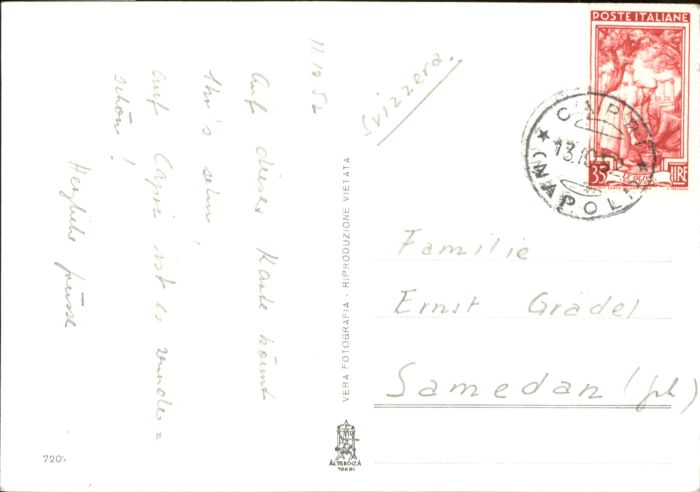 11.10.52
Auf dieser Karte könnt
Ihr's sehn!
Auf Capri ist es wunder=
schön!
Herzliche Grüsse
VERA FOTOGRAFIA - RIPRODUZIONE VIETATA
ALTEROCCA
TERNI
720
Svizzera.
POSTE ITALIANE
35 LIRE
CAPRI
13.10.52
(NAPOLI)
Familie
Ernst Grädel
Samedan